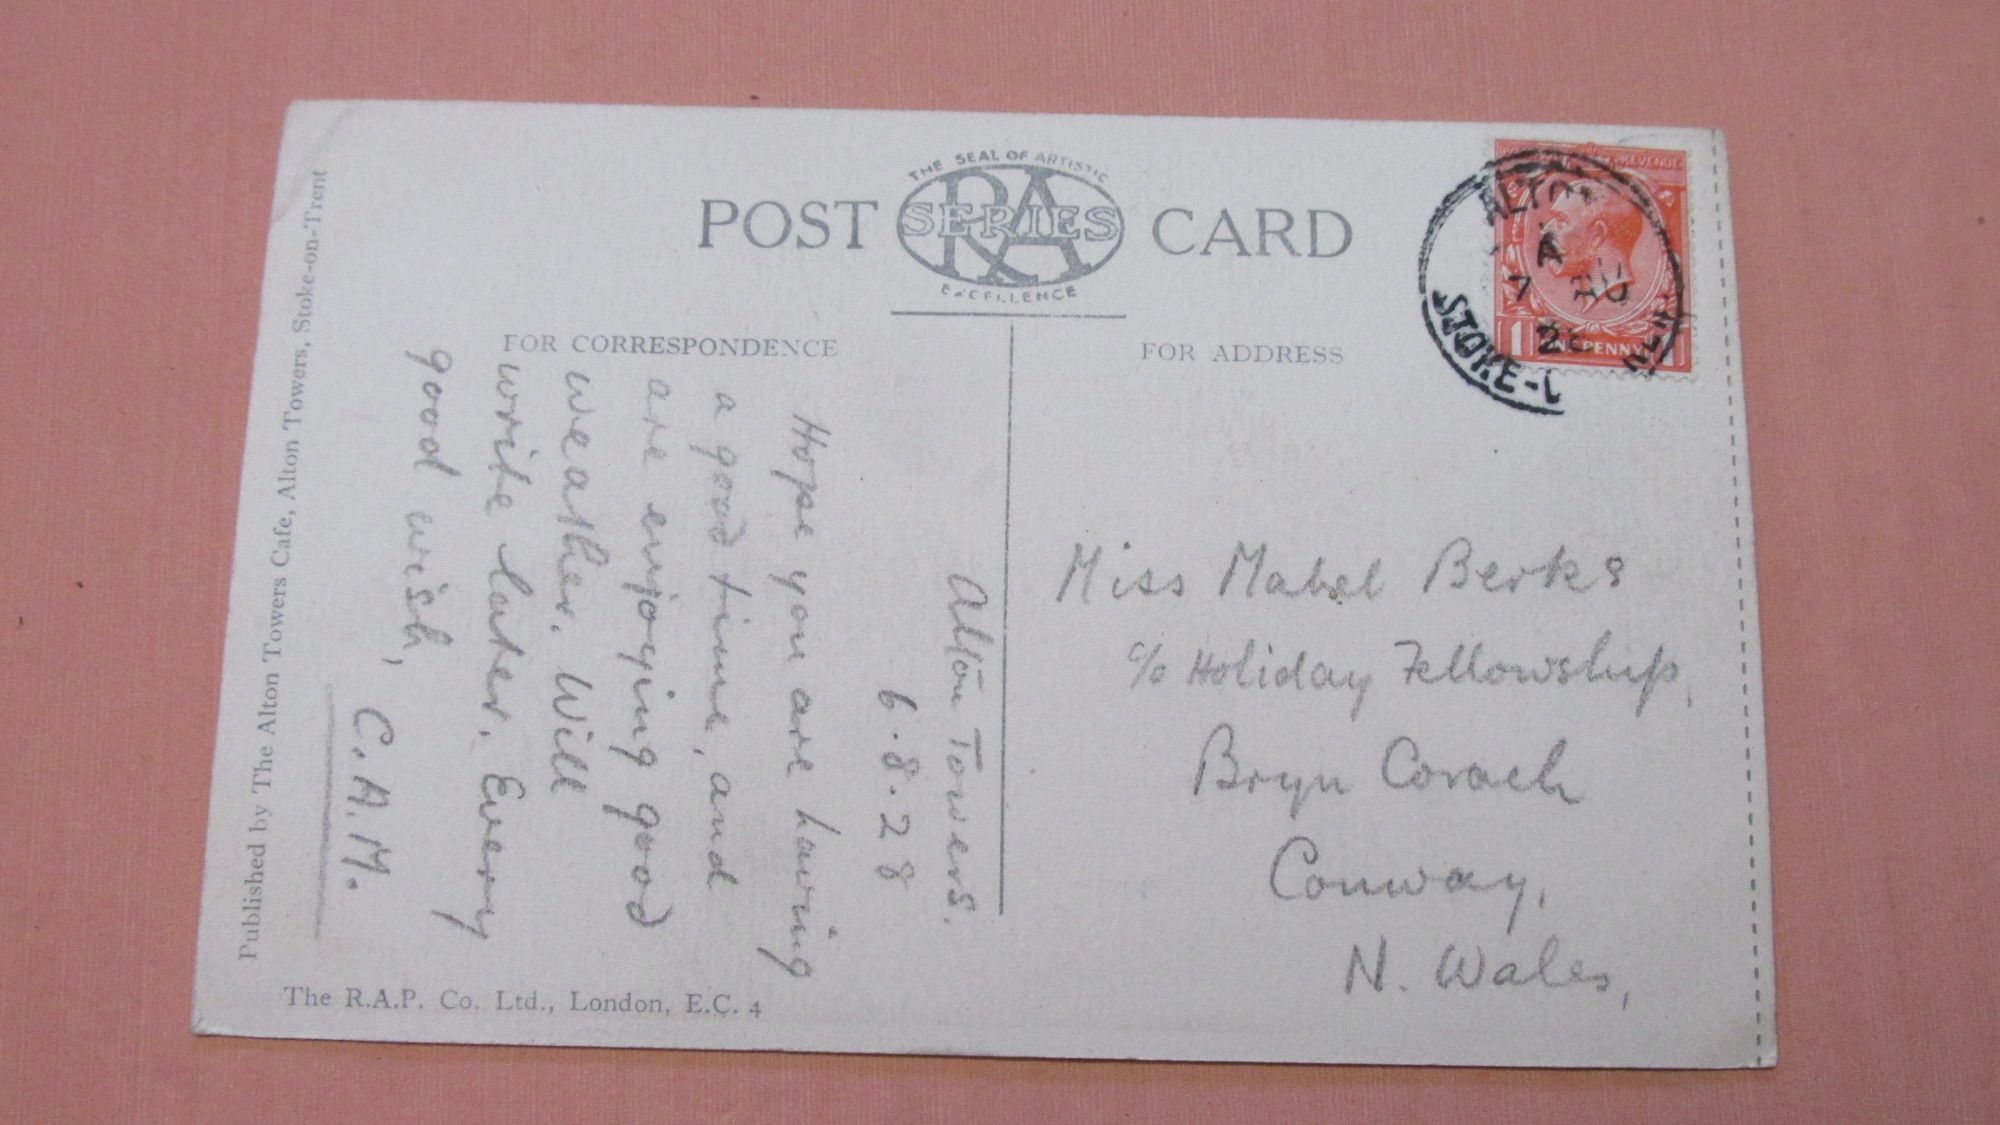 POST CARD
THE SEAL OF ARTISTIC
RA
SERIES
EXCELLENCE
FOR CORRESPONDENCE
FOR ADDRESS
REVENUE
1 ONE PENNY 1
ALTON
A
7 AU
28
STOKE-
Alton Towers.
6.8.28
Hope you are having
a good time, and
are enjoying good
weather. Will
write later. Every
good wish,
C.A.M.
Miss Mabel Berks
c/o Holiday Fellowship,
Bryn Corach
Conway,
N. Wales,
Published by The Alton Towers Cafe, Alton Towers, Stoke-on-Trent
The R.A.P. Co. Ltd., London, E.C. 4